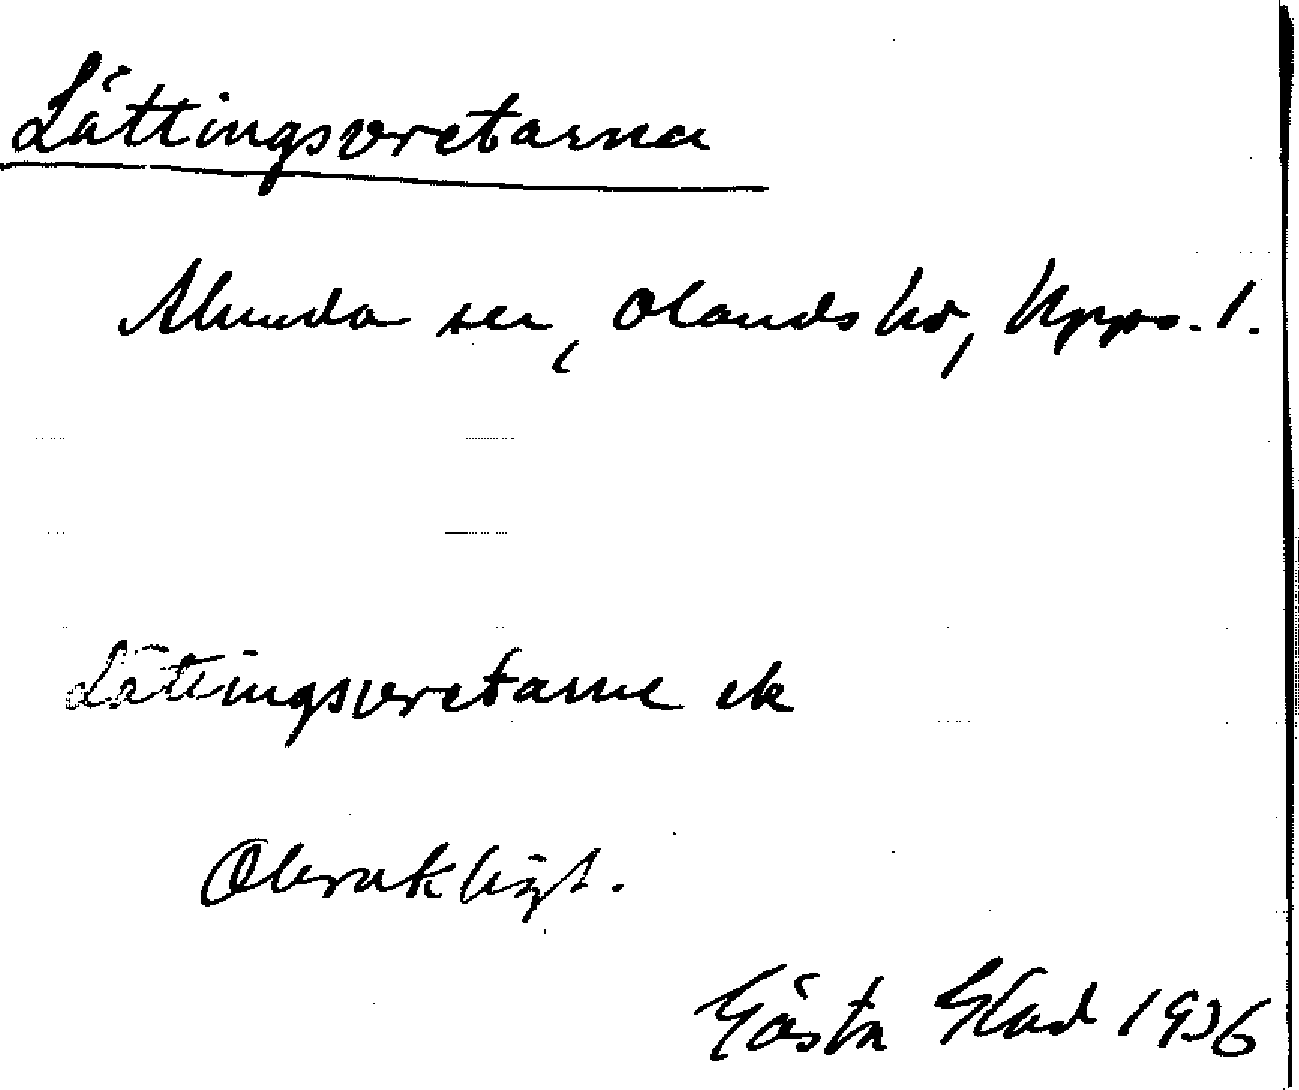 Lättingsvretarna
Alunda sn, Olands hd, Upps. l.
Lättingsvretarne ek
Obrukligt.
Gösta Glad 1936